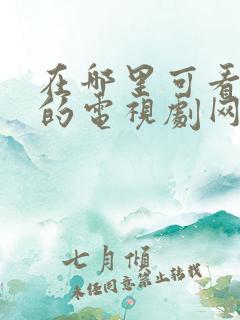 在哪里可看
的电视剧网
七月倾
未经同意禁止转载